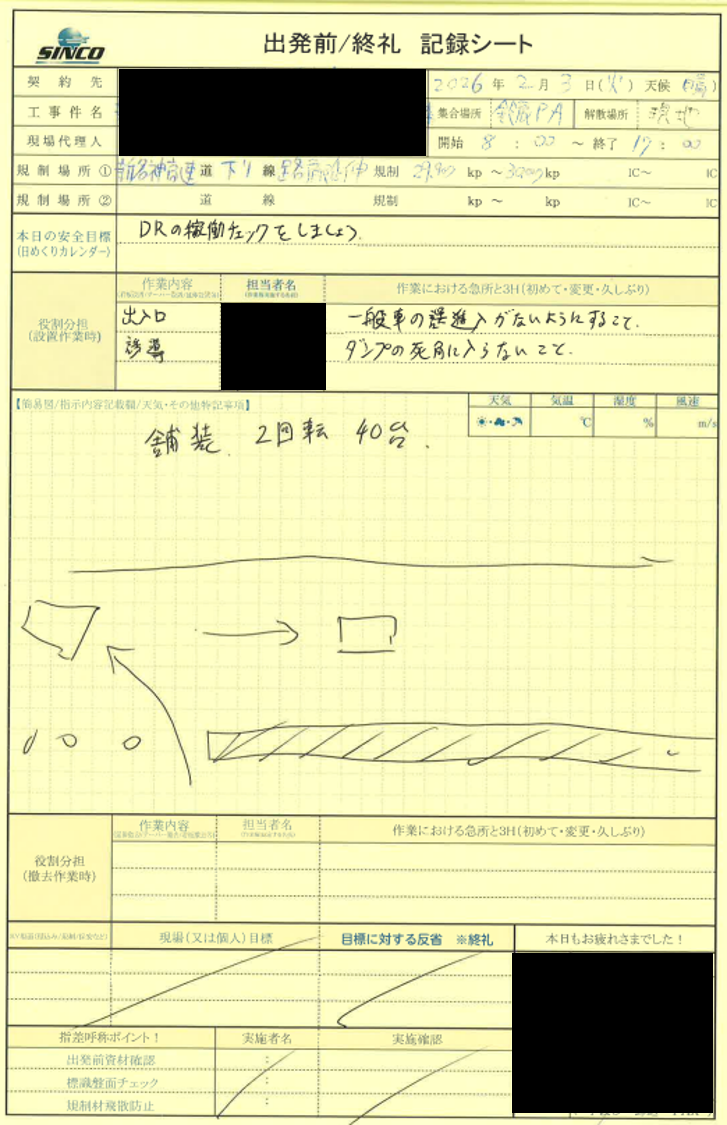 SINCO
出発前/終礼 記録シート
契約先 2026年2月3日(火) 天候(晴)
工事件名 集合場所 PA 解散場所 現地
現場代理人 開始 8:00 ～終了 17:00
規制場所① 新名神高速道 下り線 規制 29.900kp ～ kp IC～ IC
規制場所② 道 線 規制 kp ～ kp IC～ IC
本日の安全目標
(日めくりカレンダー)
DRの稼働チェックをしましょう.
役割分担
(設置作業時)
作業内容 担当者名 作業における急所と3H(初めて・変更・久しぶり)
出入口 一般車の誤進入がないようにすること.
誘導 ダンプの死角に入らないこと.
【簡易図/指示内容記載欄/天気・その他特記事項】
天気 気温 湿度 風速
℃ % m/s
舗装. 2回転 40台.
役割分担
(撤去作業時)
作業内容 担当者名 作業における急所と3H(初めて・変更・久しぶり)
現場(又は個人)目標 目標に対する反省 ※終礼 本日もお疲れさまでした!
指差呼称ポイント! 実施者名 実施確認
出発前資材確認 :
標識盤面チェック :
規制材飛散防止 :